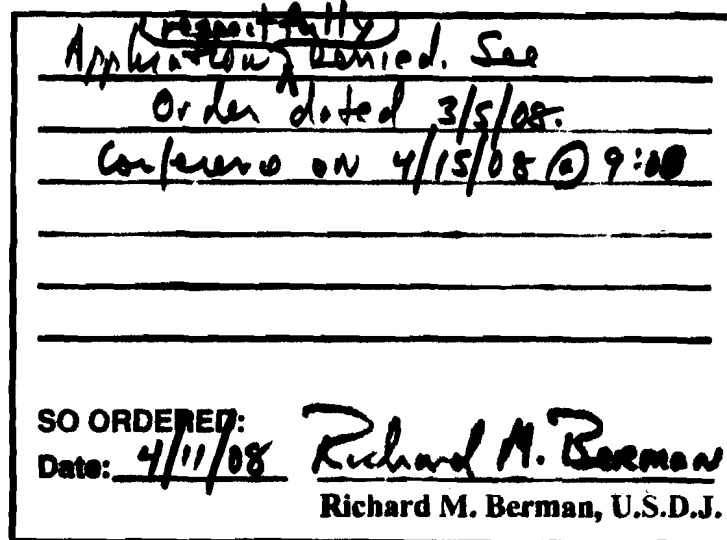 respectfully
Application ^ Denied. See
Order dated 3/5/08.
Conference on 4/15/08 @ 9:00
SO ORDERED:
Date: 4/11/08 Richard M. Berman
Richard M. Berman, U.S.D.J.